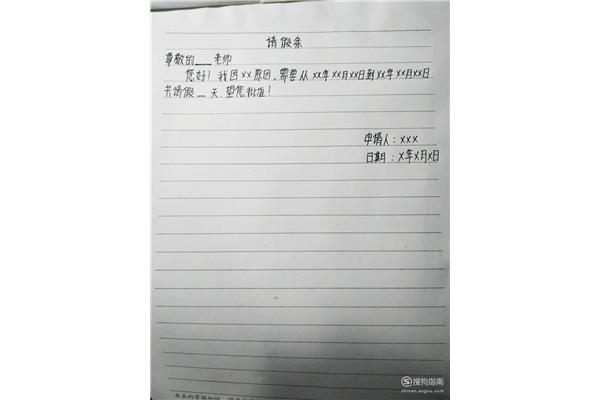 请假条
尊敬的___老师
您好！我因xx原因，需要从xx年xx月xx日到xx年xx月xx日
共请假__天，望您批准！
申请人：xxx
日期：x年x月x日
搜狗指南
zhinan.sogou.com